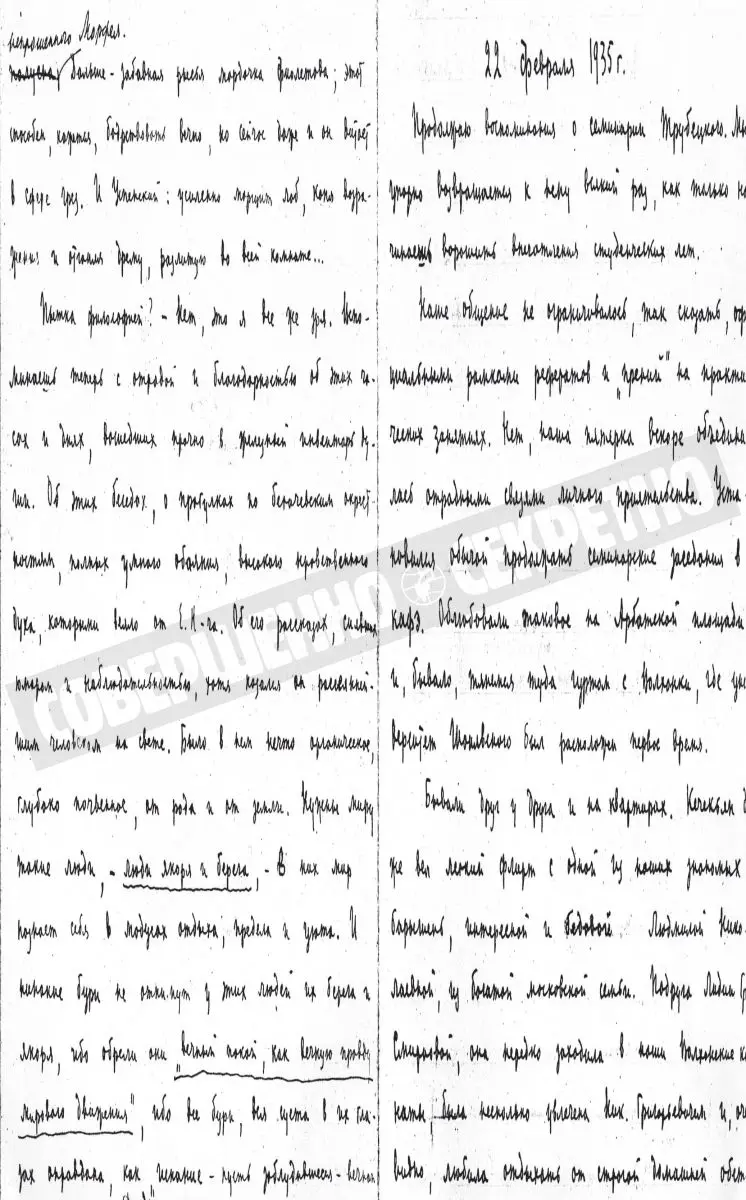 непрошенного Морфея.
Дальше - забавная рысья мордочка Фиолетова; этот
способен, кажется, бодрствовать вечно, но сейчас даже и он витает
в сфере грез. И Успенский: усиленно морщит лоб, копя возра-
жения и отгоняя дрему, разлитую во всей комнате...
Пытка философией? - Нет, это я все же зря. Вспо-
минаешь теперь с отрадой и благодарностью об этих ча-
сах и днях, вошедших прочно в жизни.
Об этих беседах, о прогулках по бегичевским окрест-
ностям, полных умного обаяния, высокого нравственного
духа, которыми веяло от Е.Н-ча. Об его рассказах,
юмором и наблюдательностью, хотя казался он рассеянней-
шим человеком на свете. Было в нем нечто органическое,
глубоко почвенное, от рода и от земли. Нужны миру
такие люди, - люди якоря и берега, - В них мир
познает себя в модусах отдыха, предела и уюта. И
никакие бури не отнимут у этих людей их берега и
якоря, ибо обрели они "вечный покой, как вечную правду
мирового движения", ибо все бури, вся суета в их гла-
зах оправдана, как искание - пусть заблудившееся - вечной
22 февраля 1935 г.
Продолжаю воспоминания о семинарии Трубецкого.
упорно возвращается к нему всякий раз, как только на-
чинаешь ворошить впечатления студенческих лет.
Наше общение не ограничивалось, так сказать, офи-
циальными рамками рефератов и "прений" на практи-
ческих занятиях. Нет, наша пятерка вскоре объедини-
лась отрадными связями личного приятельства. Уста-
новился обычай продолжать семинарские заседания в
кафэ. Облюбовали таковое на Арбатской площади
и, бывало, тянемся туда гуртом с Волхонки, где уни-
верситет Шанявского был расположен первое время.
Бывали друг у друга и на квартирах. Кечекьян да-
же вел легкий флирт с одной из наших знакомых
барышень, интересной и бедовой Людмилой Нико-
лаевной, из богатой московской семьи. Подруга Лидии
Смирновой, она нередко заходила в наши Волхонские ком-
наты, была несколько увлечена Ник. Григорьевичем и, оче-
видно, любила отдыхать от строгой домашней обста-
СОВЕРШЕННО СЕКРЕТНО